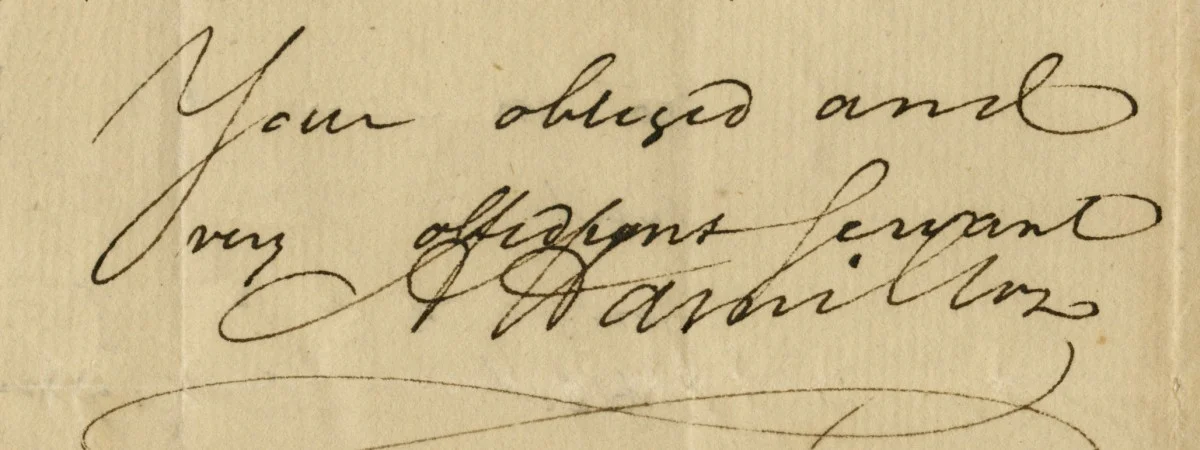 Your obliged and
very obedient servant
A Hamilton